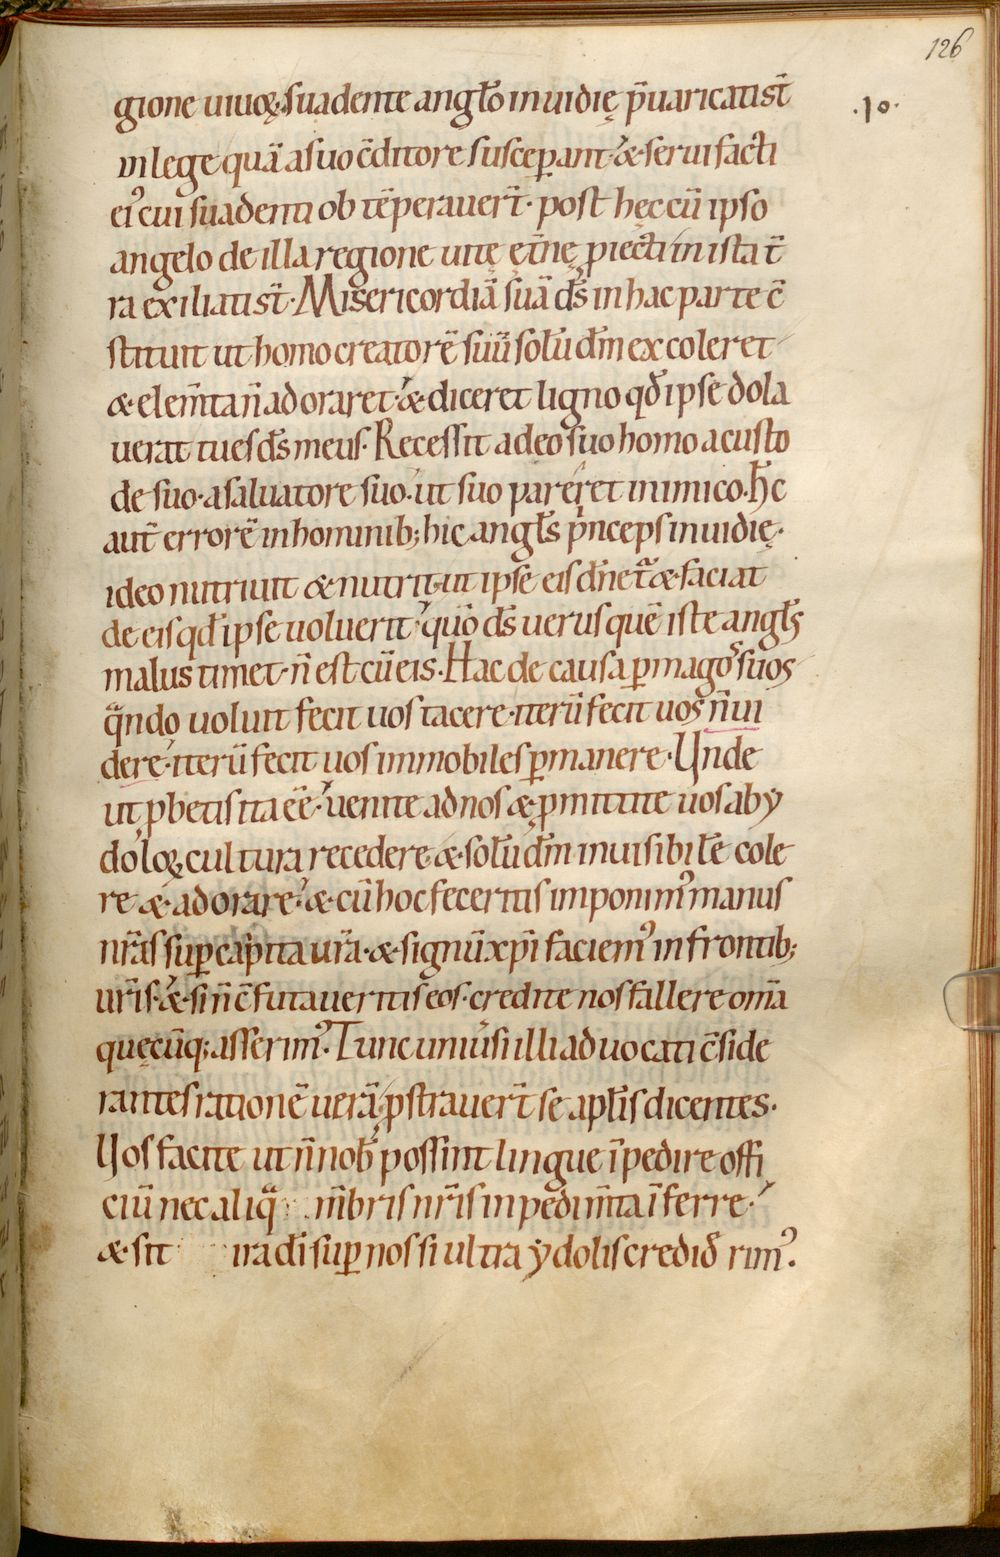 126
gione uiuoꝝ. suadente angl̃o inuidię p̃uaricatis̃t ·10·
in lege quā a suo c̃ditore susceꝑant. & serui facti
ei᾿ cui suadenti obtēperauer̃t. post hęc cū ipso
angelo de illa regione uitę ęt̃nę ꝓiecti in ista t̃
ra exiliatis̃t. Misericordiā suā d̃s in hac parte c̃
stituit ut homo creatorē suū sol̃u d̃m excoleret
& elem̃ta ñ adoraret. & diceret ligno qđ ipse dola
uerat tu es d̃s meus. Recessit a deo suo homo a custo
de suo. a saluatore suo. ut suo pareret inimico. H̃c
aut̃ errorē in hominib; hic angl̃s p̃nceps inuidię.
ideo nutriuit & nutrit. ut ipse eis d̃net᷑ & faciat
de eis qđ ipse uoluerit. quō d̃s uerus quē iste angl̃s
malus timet. ñ est cū eis. Hac de causa ꝑ magos suos
q̃ndo uoluit fecit uos tacere. iterū fecit uos ñ ui
dere. iterū fecit uos immobiles ꝑmanere. Unde
ut ꝓbetis ita ēē. uenite ad nos & ꝓmittite uos ab y
doloꝝ cultura recedere & sol̃u d̃m inuisibilē cole
re & adorare. & cū hoc feceritis imponim᾿ manus
nr̃as suꝑ capita ur̃a. & signū xp̃i faciem᾿ in frontib;
ur̃is. & si ñ c̃futaueritis eos. credite nos fallere om̃a
quęcūq; asserim᾿. Tunc uniuersi illi aduocati c̃side
rantes rationē uerā. ꝓstrauer̃t se apl̃is dicentes.
Uos facite ut ñ nob̃ possint lingue īpedire offi
ciū nec aliq̃ m̃bris nr̃is inpedim̃ta īferre.
& sit ira dī suꝑ nos si ultra ydolis credid rim᾿.